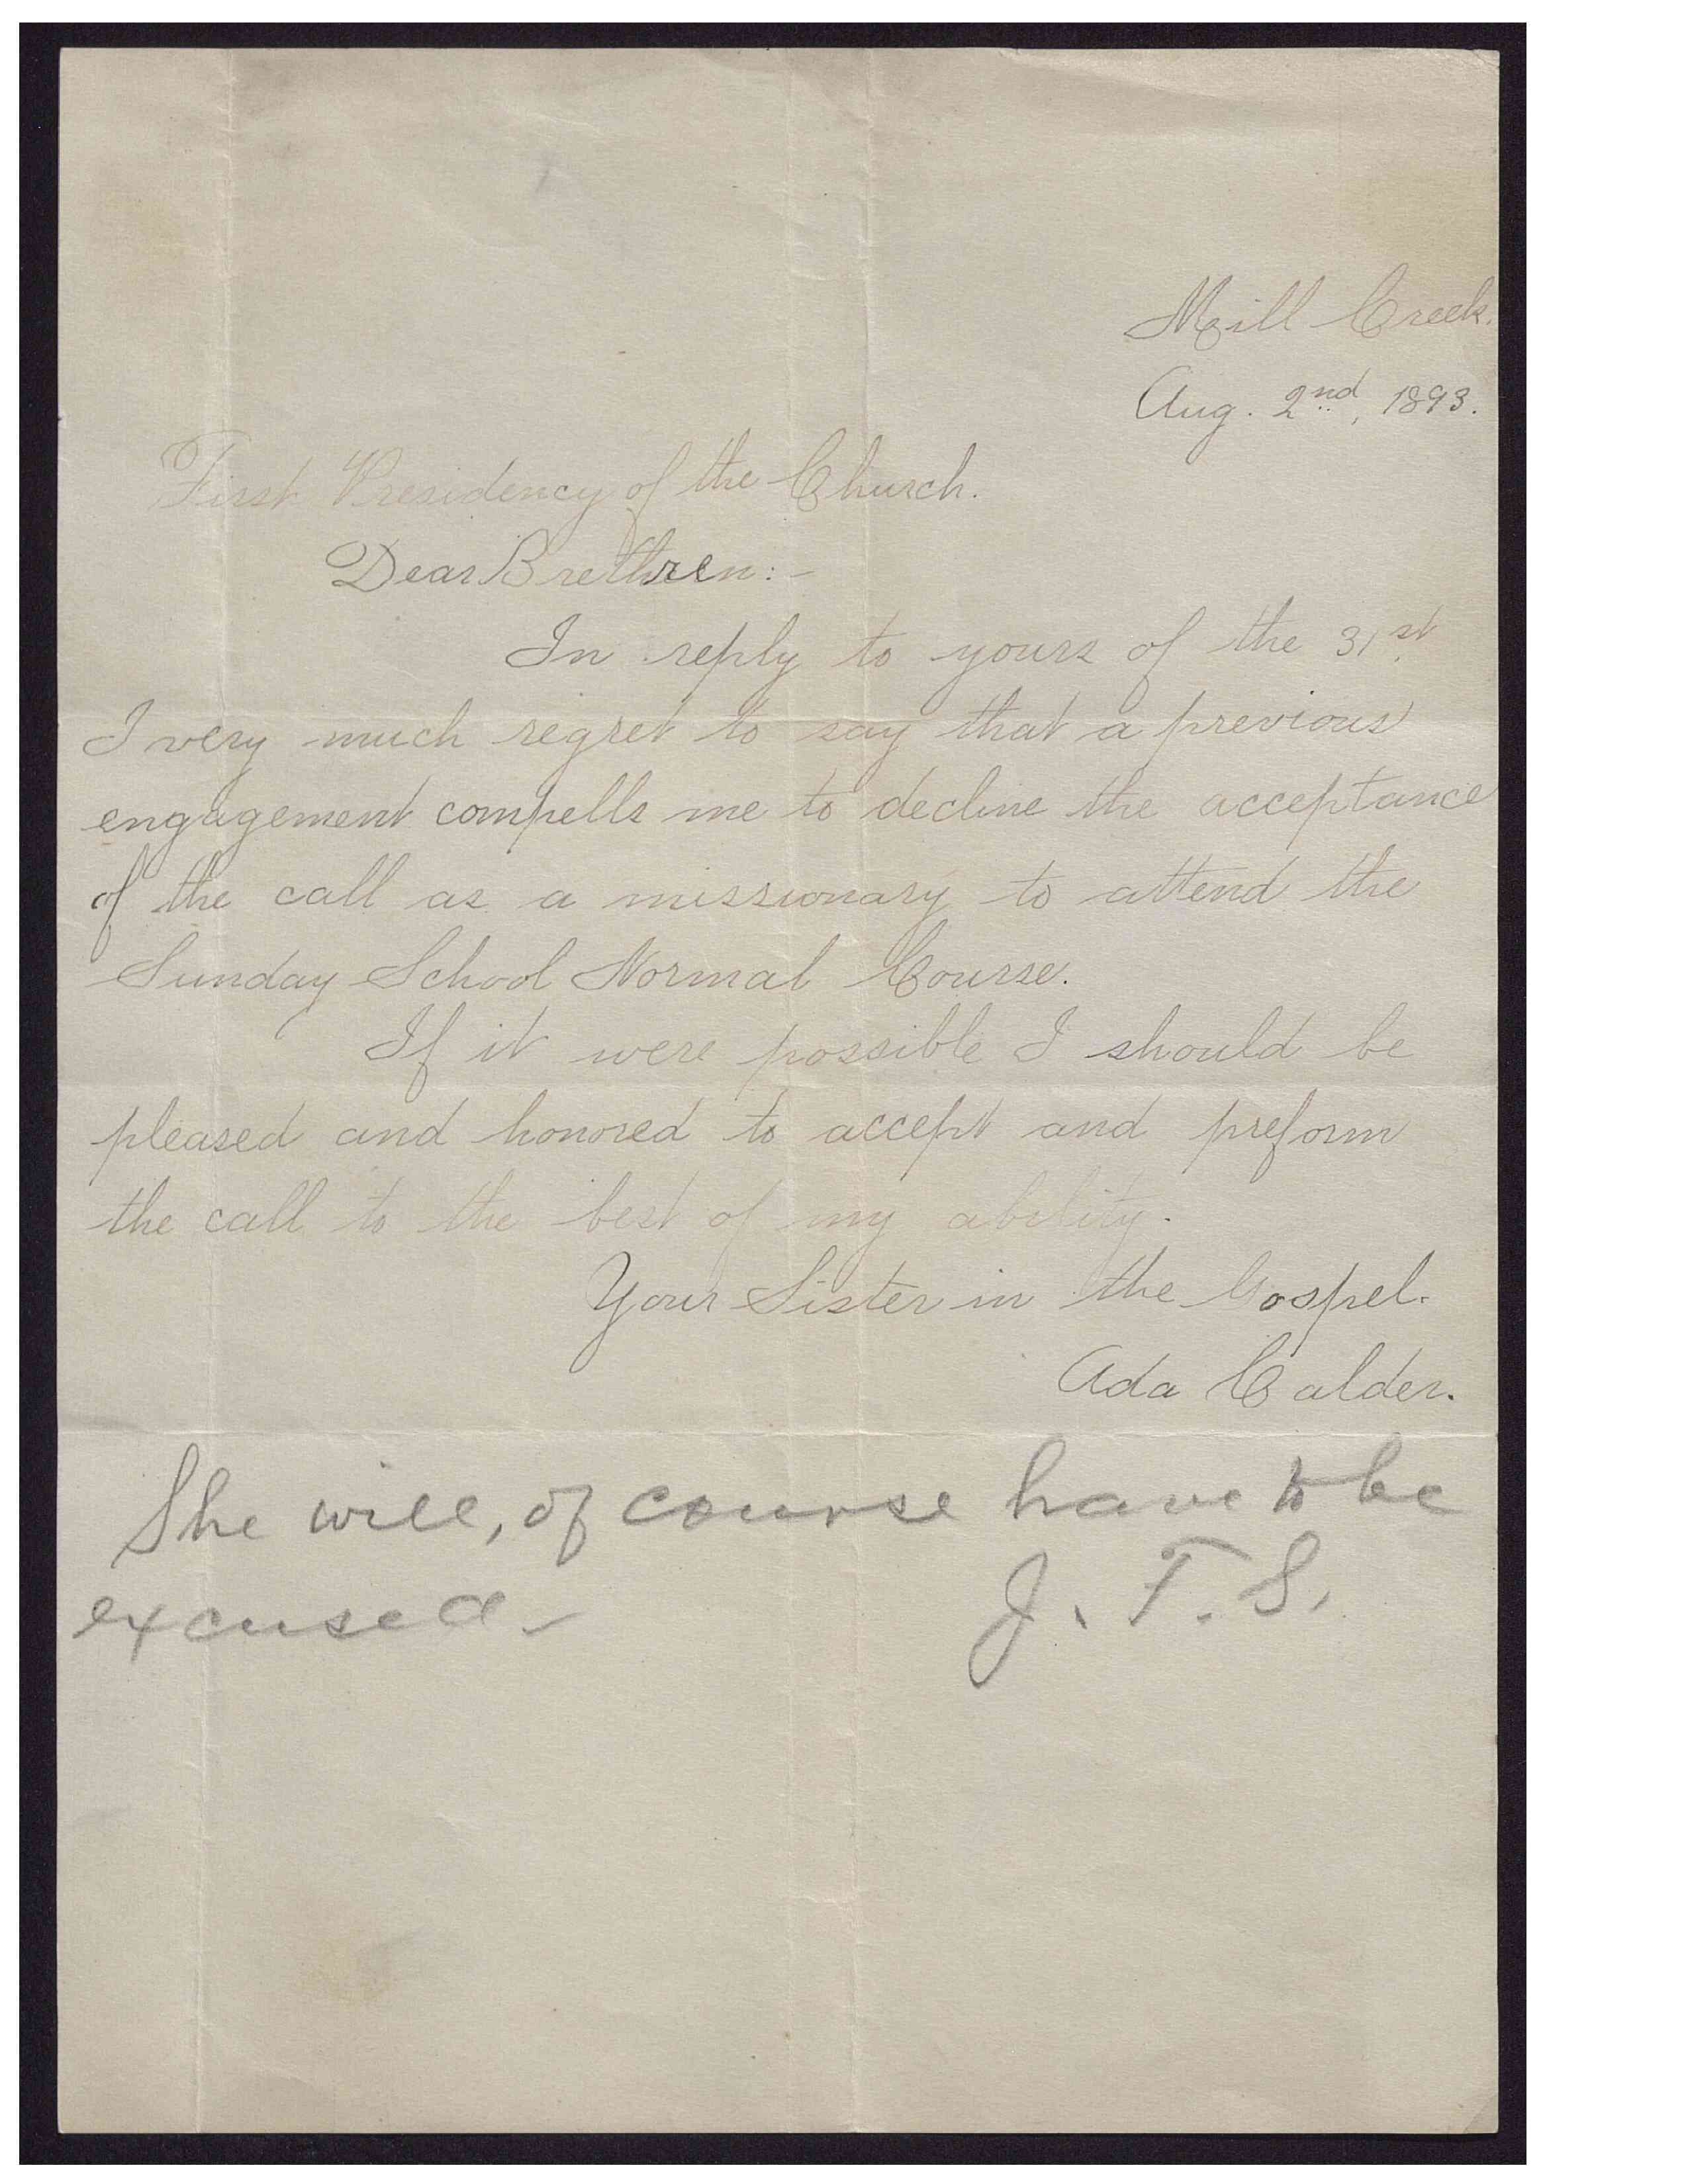 Mill Creek.
Aug. 2nd, 1893.
First Presidency of the Church.
Dear Brethren:-
In reply to yours of the 31st.
I very much regret to say that a previous
engagement compells me to decline the acceptance
of the call as a missionary to attend the
Sunday School Normal Course.
If it were possible I should be
pleased and honored to accept and preform
the call to the best of my ability.
Your Sister in the Gospel.
Ada Calder.
She will, of course have to be
excused -
J. F. S.